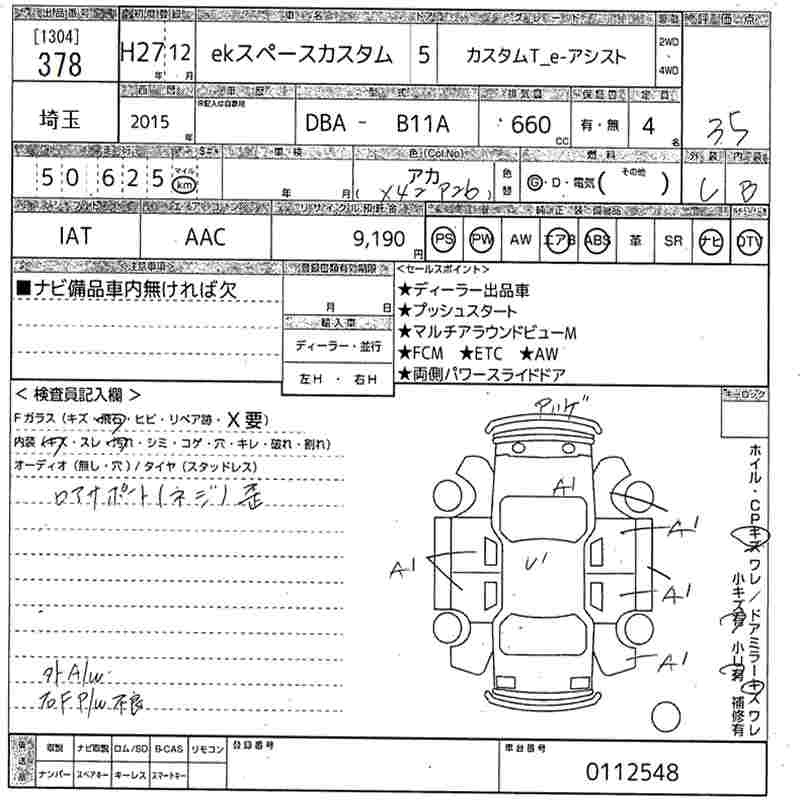 出品番号 初度登録 車名 ドア グレード 駆動 評価点
[1304]
378
H27年 12月 ekスペースカスタム 5 カスタムT_e-アシスト 2WD・4WD
車歴 型式 排気量 保証書 定員
未記入は自家用
埼玉 2015年 DBA - B11A 660cc 有・無 4名 3.5
車検 色(Col No) 燃料 外装 内装
50625 マイル km 年 月 アカ (X42 P26) 色替 G・D・電気 (その他) C B
リサイクル預託金 純正装備品
IAT AAC 9,190円 PS PW AW エアB ABS 革 SR ナビ DTV
注意事項 登録書類有効期限 <セールスポイント>
■ナビ備品車内無ければ欠
月 日
輸入車
ディーラー・並行
左H ・ 右H
★ディーラー出品車
★プッシュスタート
★マルチアラウンドビューM
★FCM ★ETC ★AW
★両側パワースライドドア
<検査員記入欄>
Fガラス(キズ・飛石・ヒビ・リペア跡・X要)
内装(キズ・スレ・汚れ・シミ・コゲ・穴・キレ・破れ・割れ)
オーディオ(無し・穴)/タイヤ(スタッドレス)
ロアサポート(ネジ)歪
外A/W
右F P/W不良
キーロック
A1
A1
U1
A1
A1
A1
ホイル・CPキズワレ/ドアミラーキズワレ
小キズ有 小U有 補修有
後送品 取説 ナビ取説 ロム/SD B-CAS リモコン 登録番号 車台番号
ナンバー スペアキー キーレス スマートキー
0112548